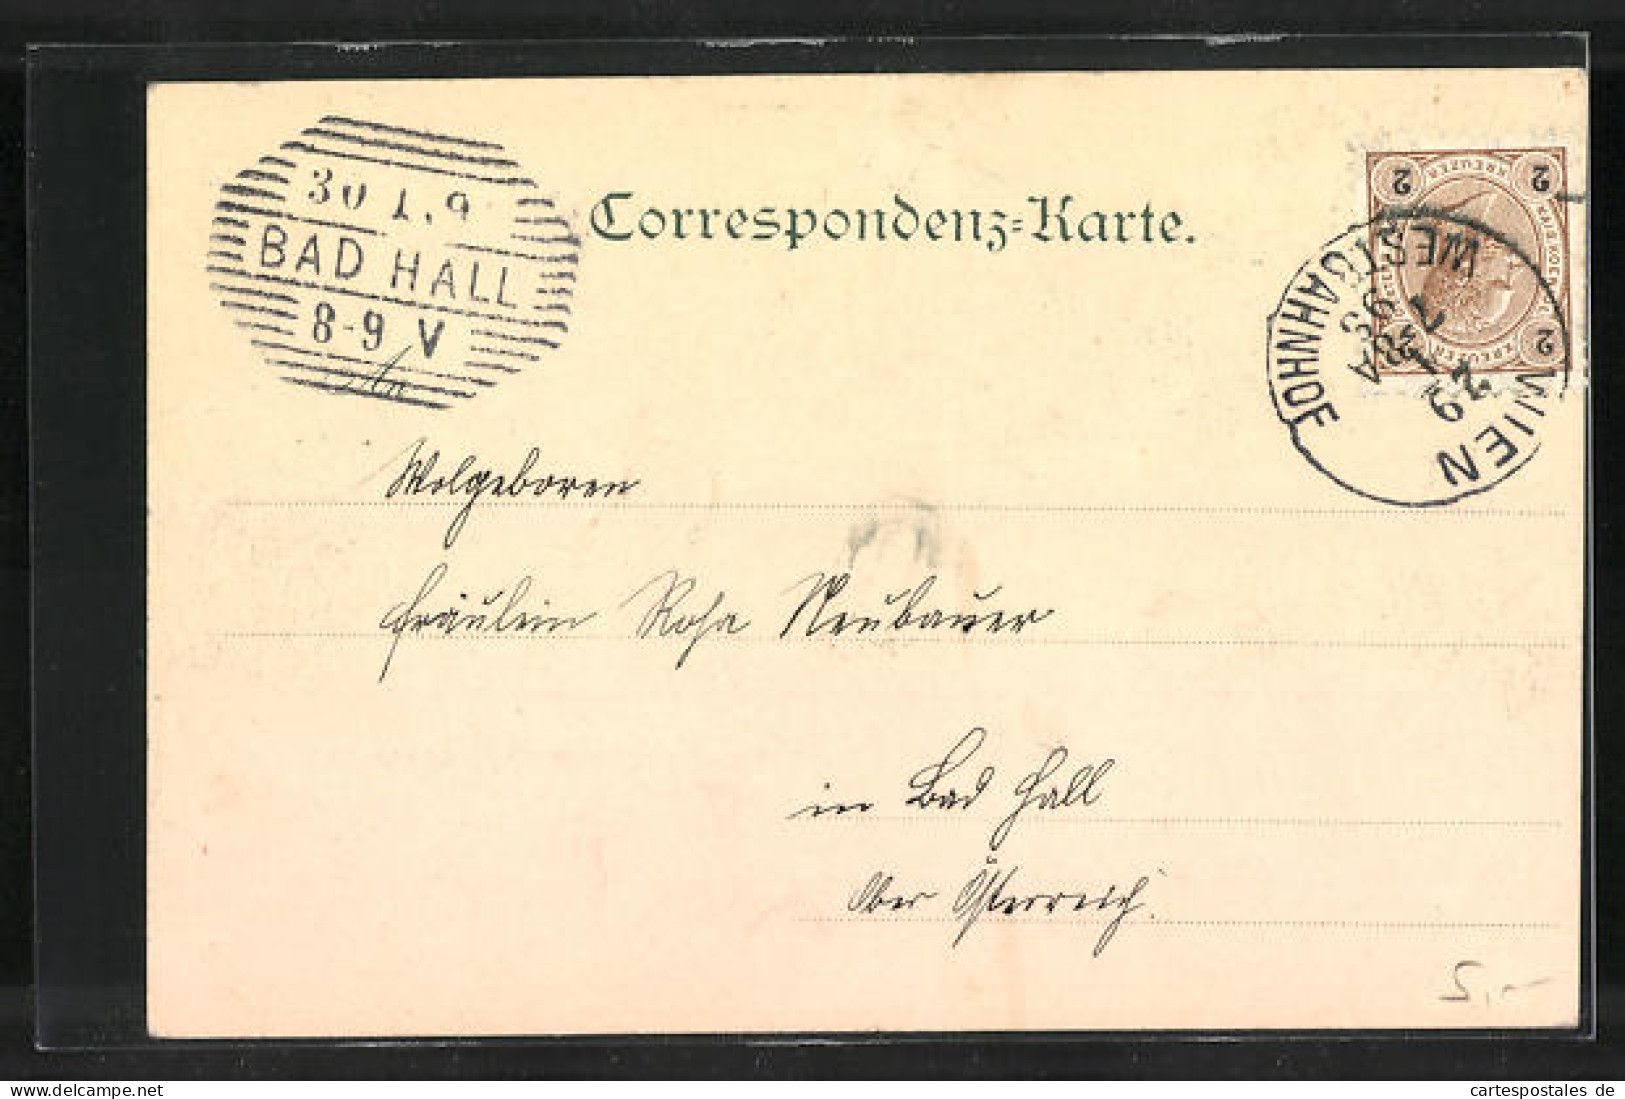 30 1.9
BAD HALL
8-9 V
Correspondenz=Karte.
2 KREUZER 2
2 KREUZER 2
WIEN
WESTBAHNHOF
29
1
7 99
An
Wolgeboren
Fräulein Rosa Neubauer
in Bad Hall
Ober Österreich.
5,-
cartespostales de